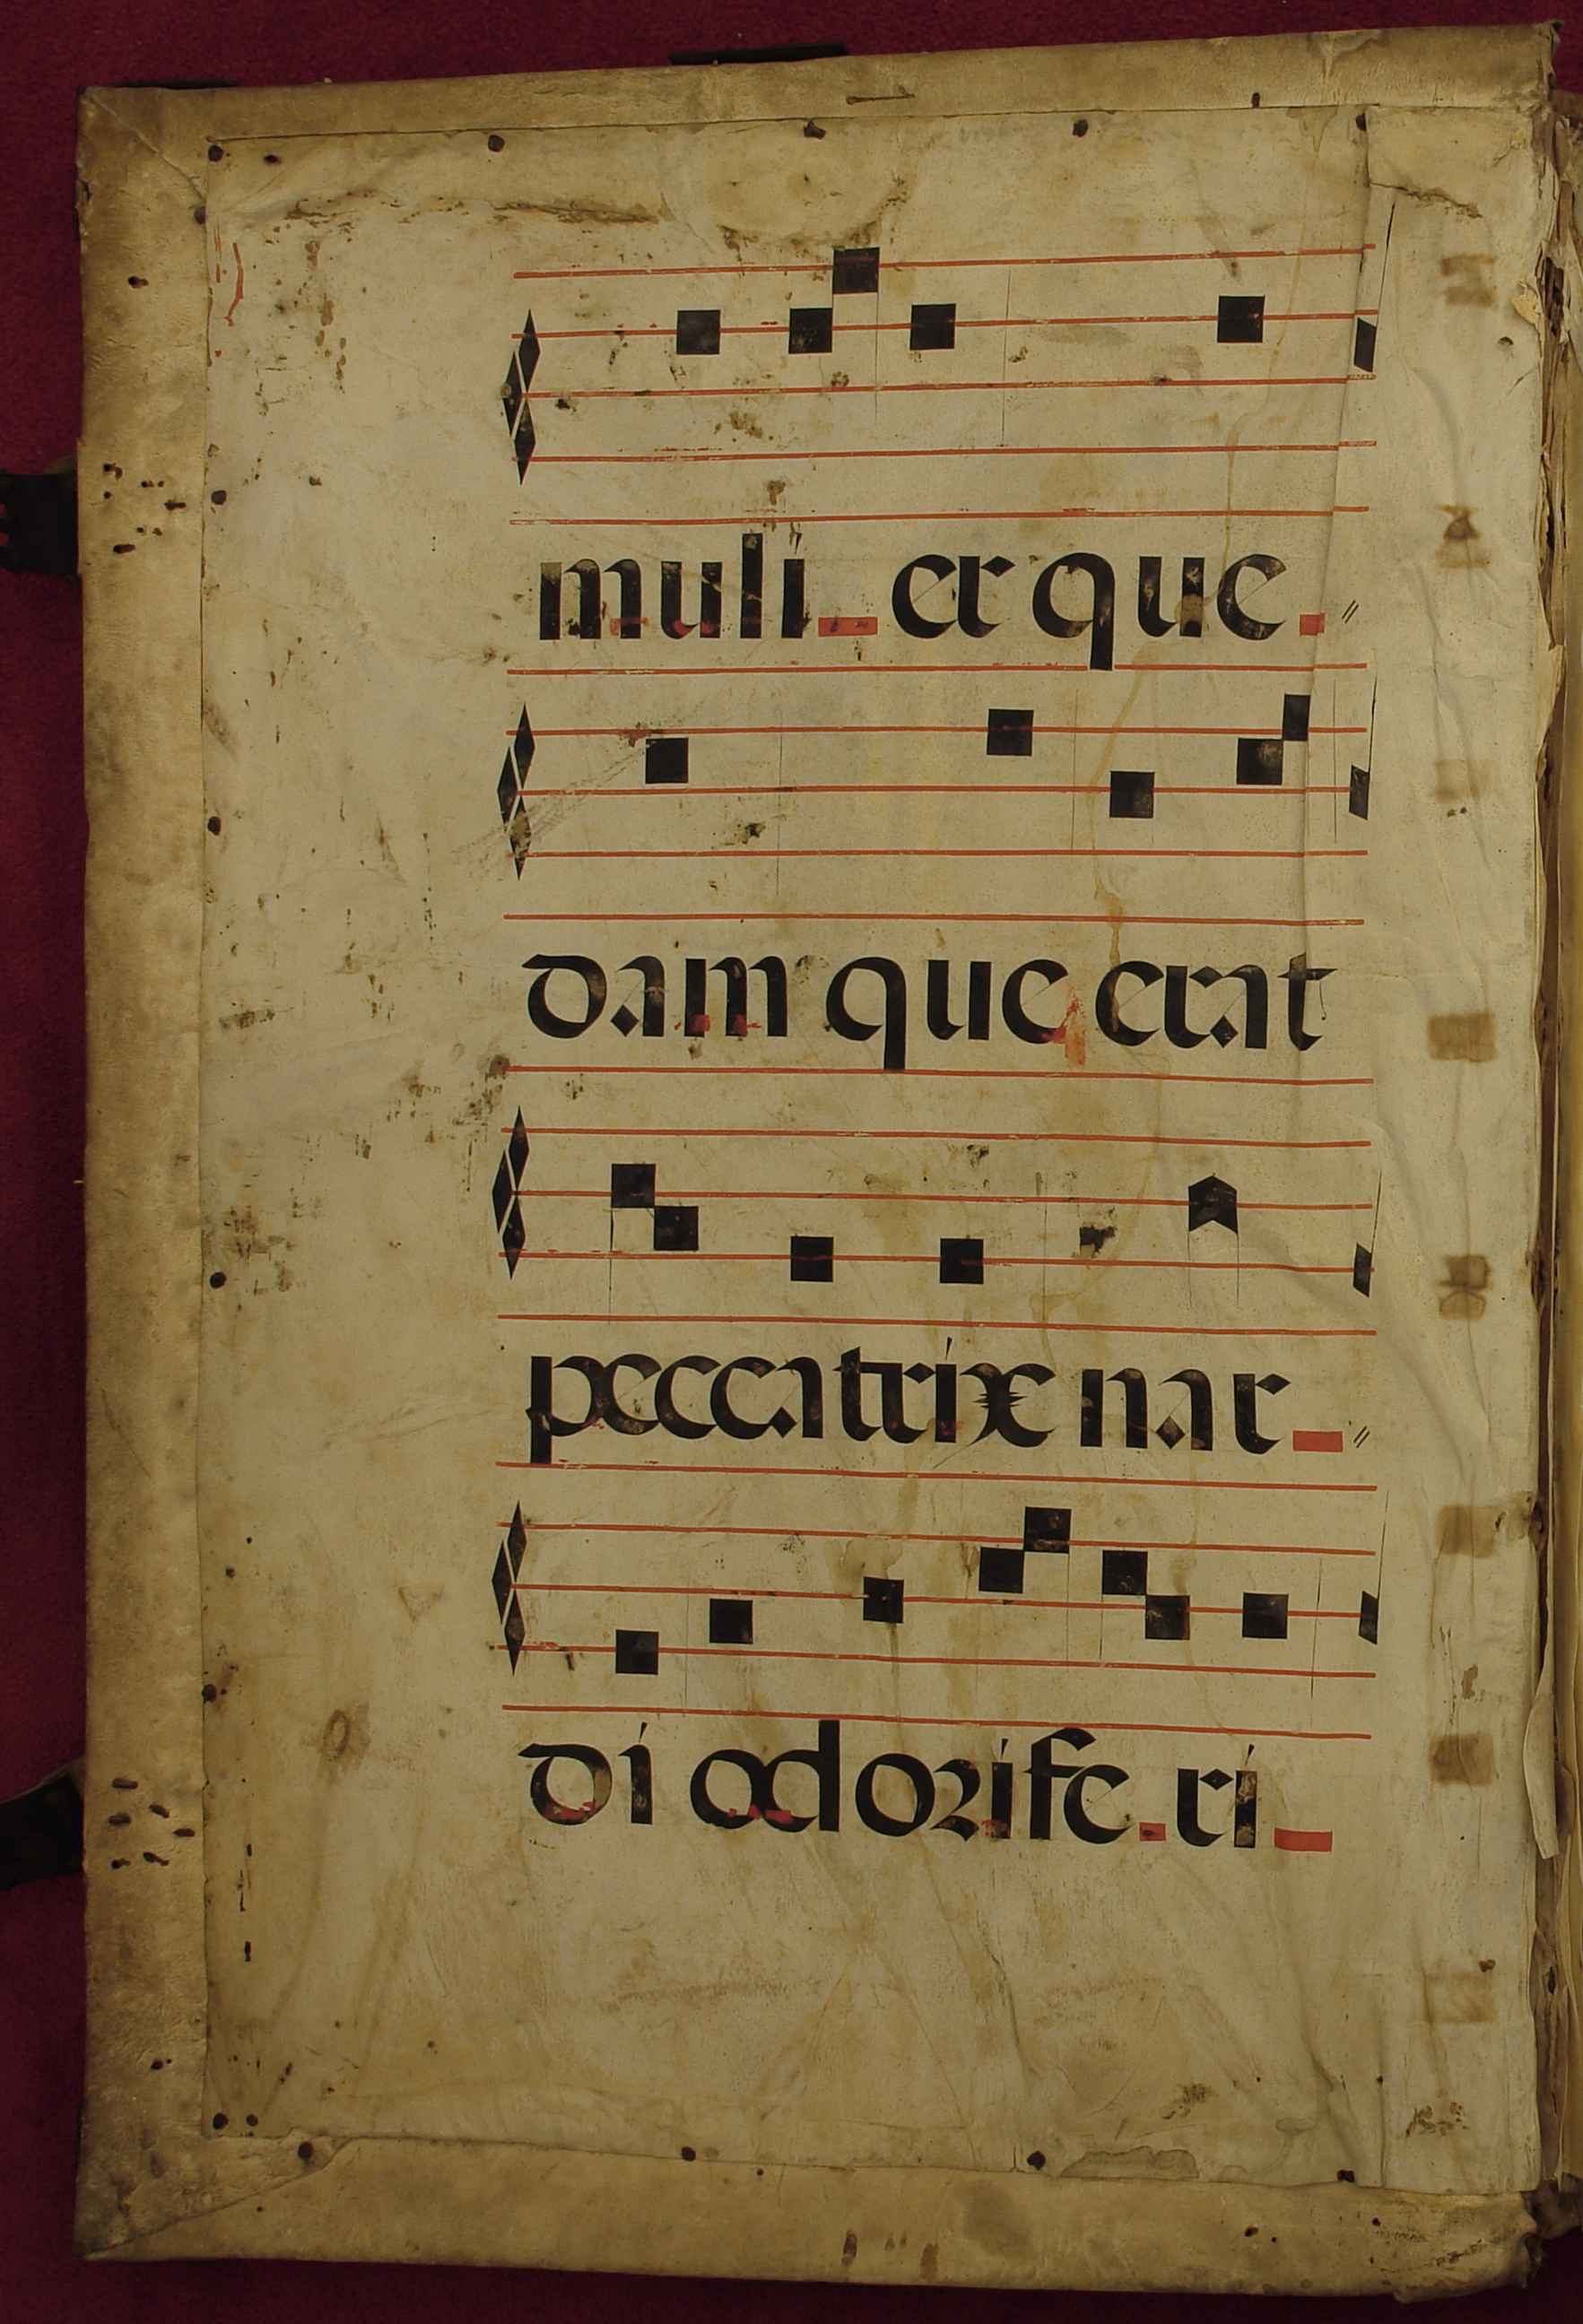 muli er que
dam que erat
peccatrix nar
di odorife ri